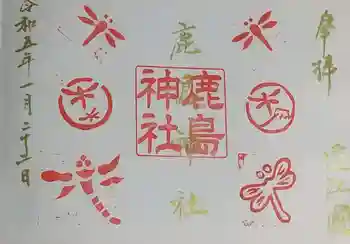 奉拝
鹿島神社
鹿島
神社
令和五年一月二十二日